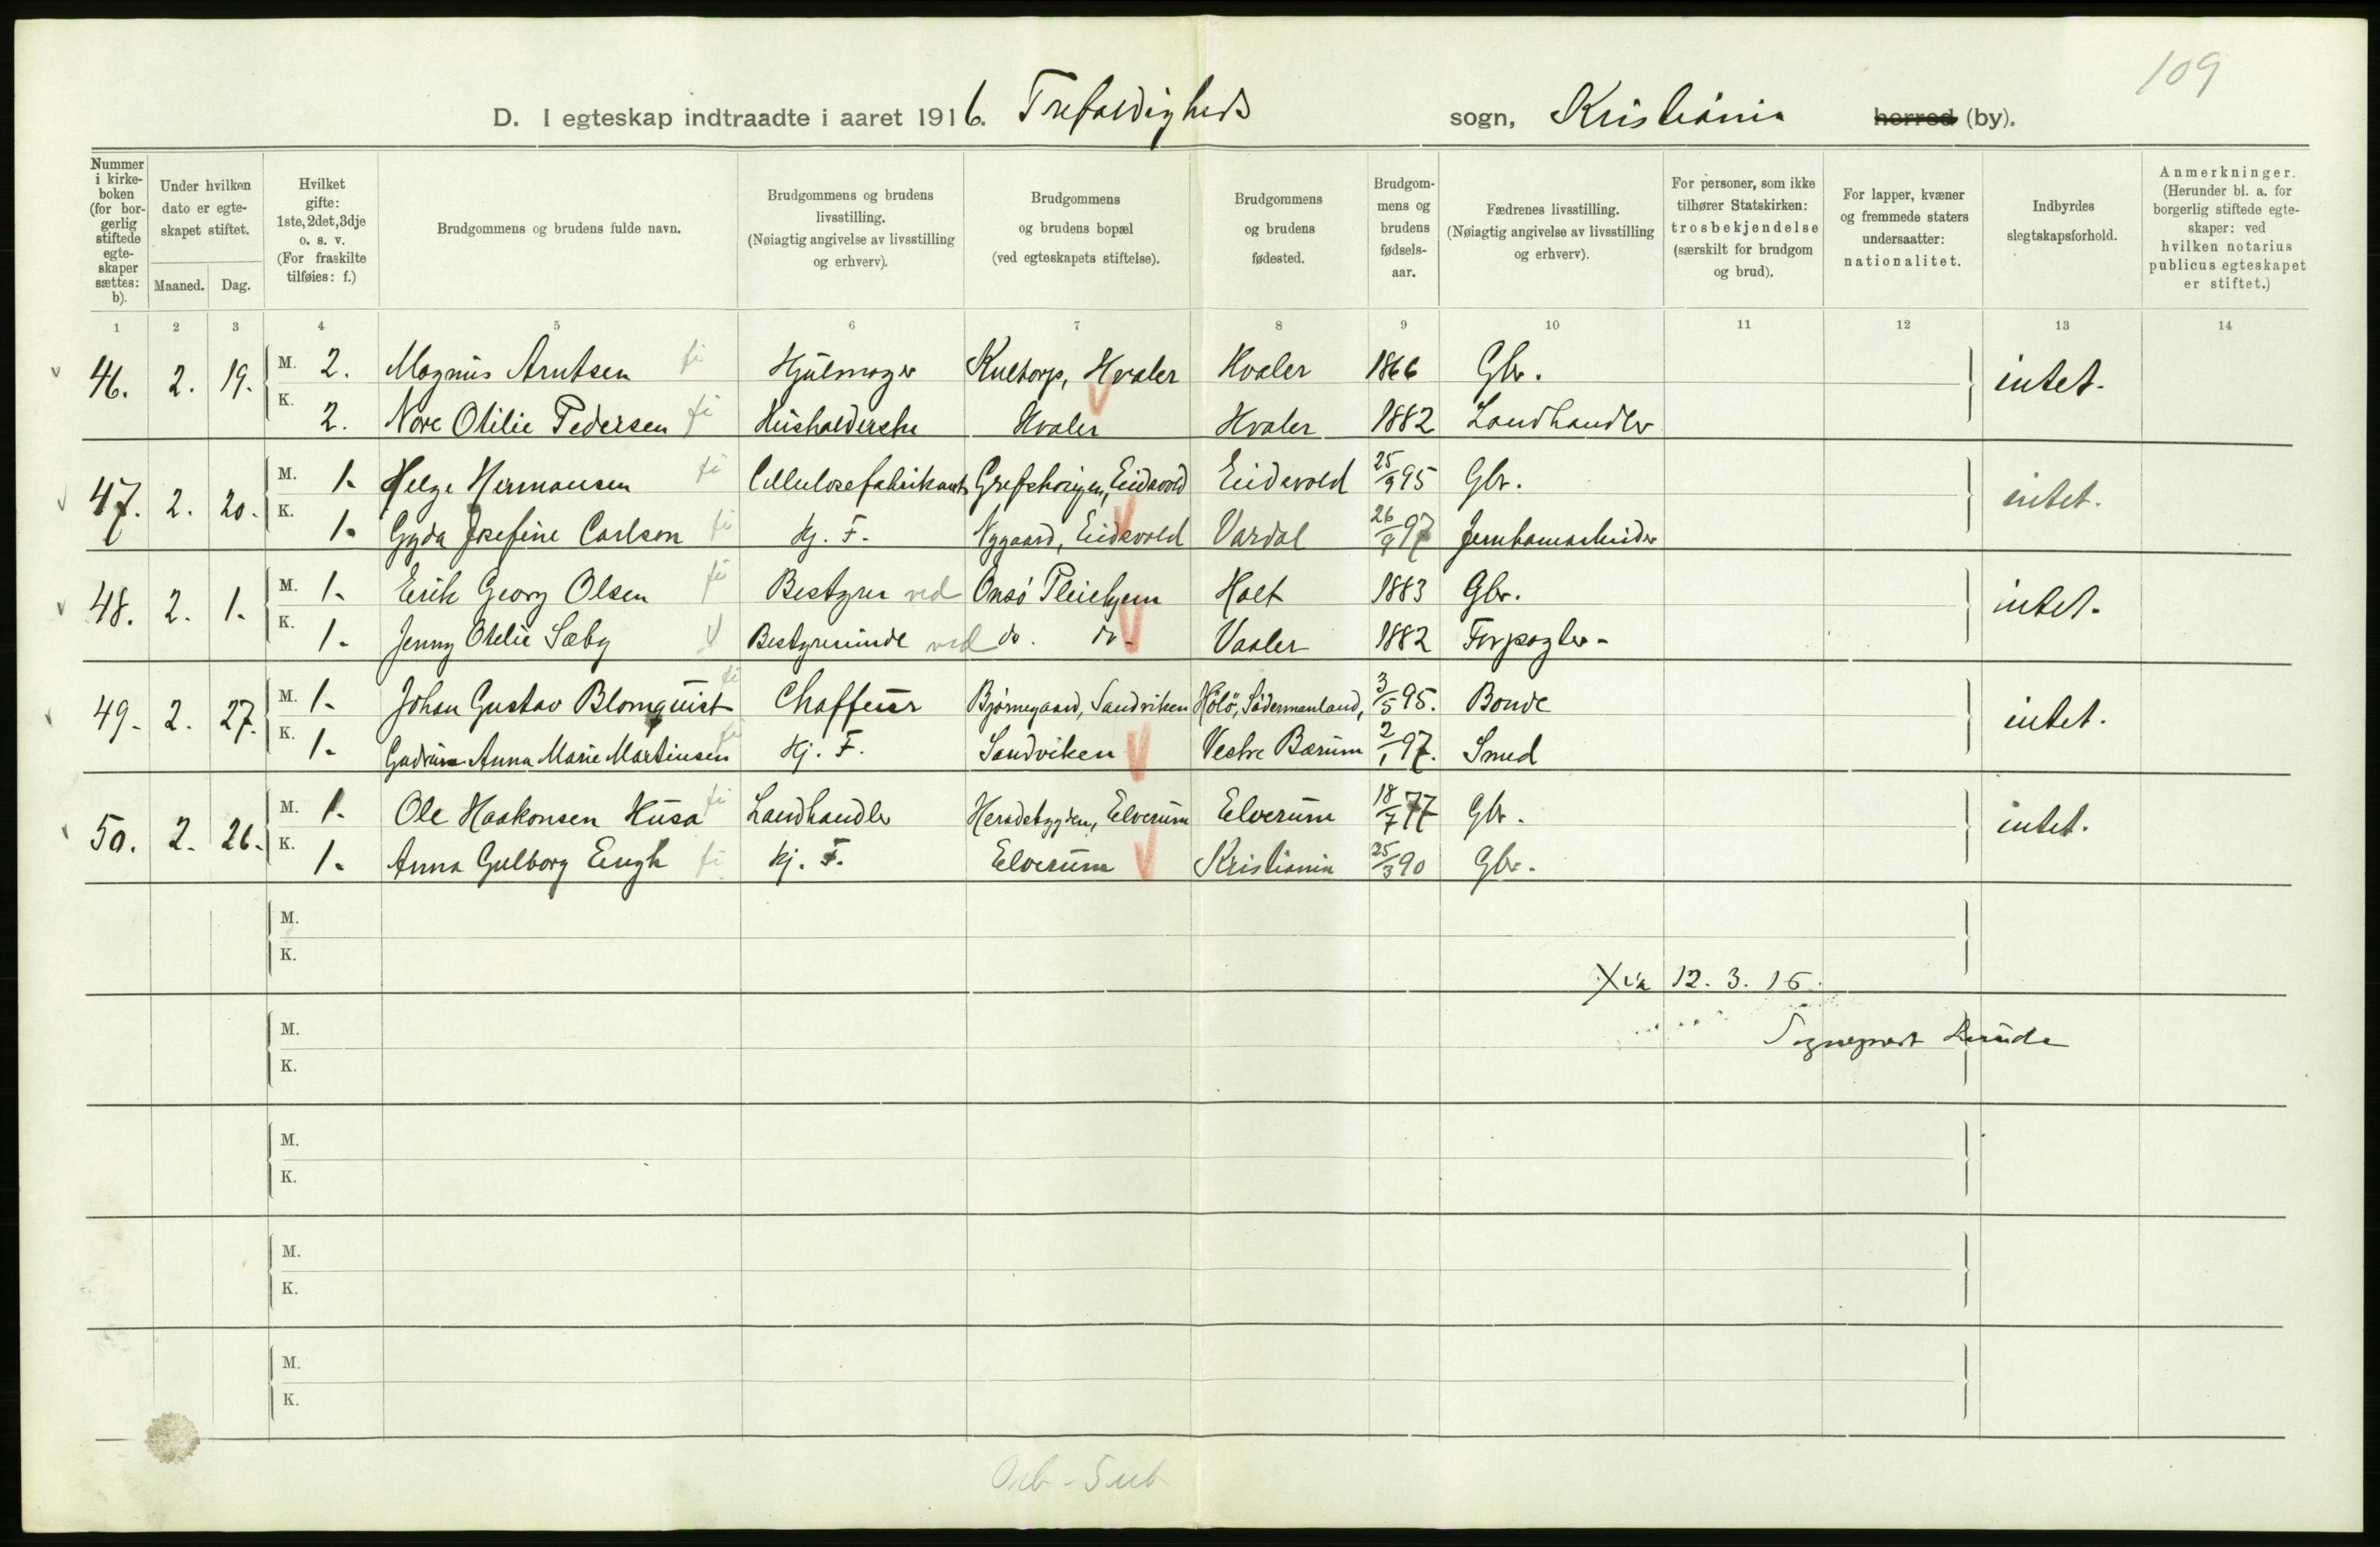 109
D. I egteskap indtraadte i aaret 1916. Trefoldigheds sogn, Kristiania herred (by).
Nummer i kirke-boken (for bor-gerlig stiftede egte-skaper sættes: b).
Under hvilken dato er egte-skapet stiftet.
Maaned. Dag.
Hvilket gifte: 1ste, 2det, 3dje o. s. v. (For fraskilte tilføies: f.)
Brudgommens og brudens fulde navn.
Brudgommens og brudens livsstilling. (Nøiagtig angivelse av livsstilling og erhverv).
Brudgommens og brudens bopæl (ved egteskapets stiftelse).
Brudgommens og brudens fødested.
Brudgom-mens og brudens fødsels-aar.
Fædrenes livsstilling. (Nøiagtig angivelse av livsstilling og erhverv).
For personer, som ikke tilhører Statskirken: trosbekjendelse (særskilt for brudgom og brud).
For lapper, kvæner og fremmede staters undersaatter: nationalitet.
Indbyrdes slegtskapsforhold.
Anmerkninger. (Herunder bl. a. for borgerlig stiftede egte-skaper: ved hvilken notarius publicus egteskapet er stiftet.)
1 2 3 4 5 6 7 8 9 10 11 12 13 14
46. 2. 19. M. 2. Magnus Arntsen Hjulmager Hvaler Hvaler 1866 Gbr. intet.
K. 2. Nore Otilie Pedersen Husholderske Hvaler Hvaler 1882 Landhandler
47. 2. 20. M. 1. Helge Hermansen Cellulosefabrikarb Eidsvold Eidsvold 25/9 95 Gbr. intet.
K. 1. Gyda Josefine Carlson Hj. F. Nygaard, Eidsvold Vardal 26/9 97 Jernbanearbeider
48. 2. 1. M. 1. Erik Georg Olsen Bestyrer ved Onsö Pleiehjem Holt 1883 Gbr. intet.
K. 1. Jenny Otelie Sæby Bestyrerinde ved do. do. Vaaler 1882 Forpagter
49. 2. 27. M. 1. Johan Gustav Blomquist Chaffeur Bjørnegaard, Sandviken Hölö, Södermanland, 3/5 95. Bonde intet.
K. 1. Gudrun Anna Marie Martinsen Hj. F. Sandviken Vestre Bærum 2/1 97. Smed
50. 2. 26. M. 1. Ole Haakonsen Husa Landhandler Heradsbygden, Elverum Elverum 18/7 77 Gbr. intet.
K. 1. Anna Gulborg Engh Hj. F. Elverum Kristiania 25/3 90 Gbr.
M.
K.
Xia 12. 3. 16.
M.
Sogneprest
K.
M.
K.
M.
K.
M.
K.